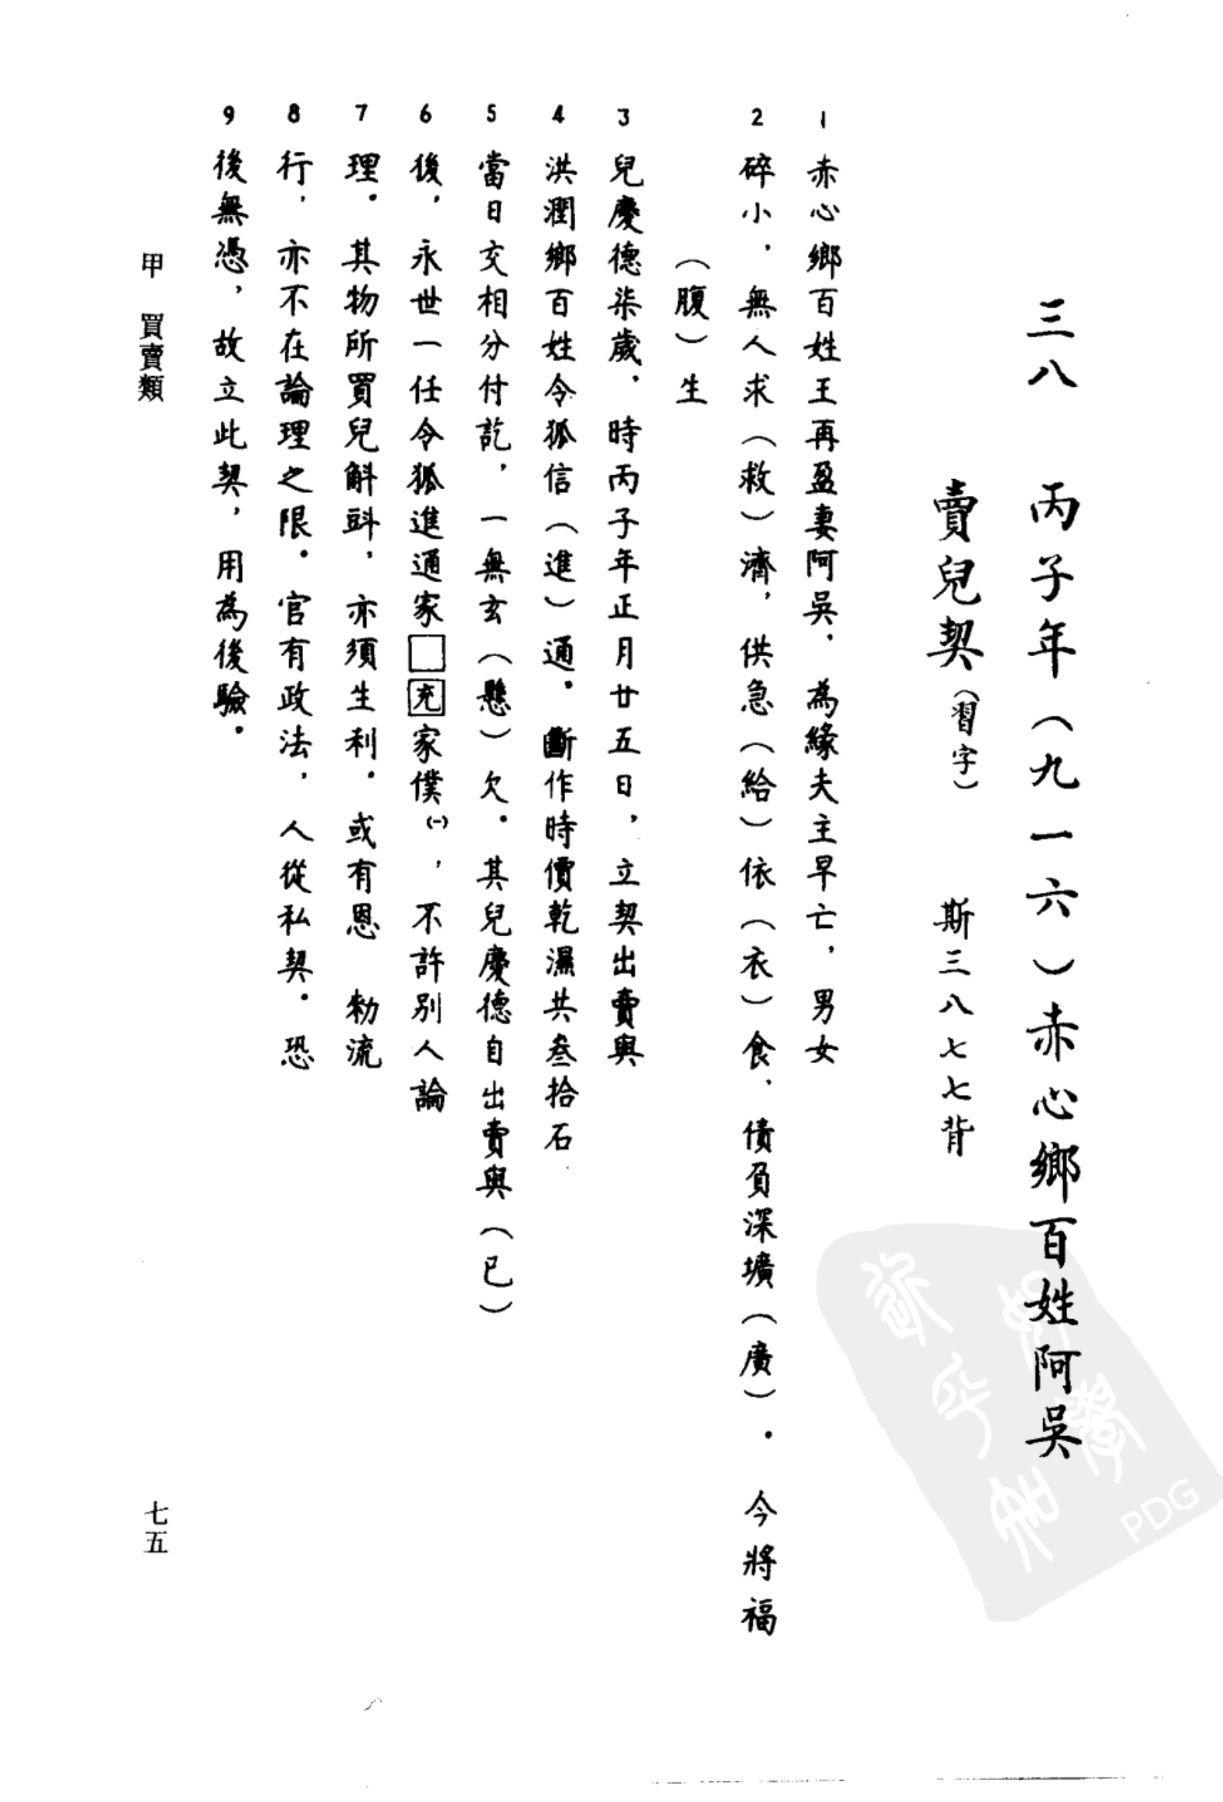 三八　丙子年（九一六）赤心鄉百姓阿吳
賣兒契（習字）　斯三八七七背
1 赤心鄉百姓王再盈妻阿吳，為緣夫主早亡，男女
2 碎小，無人求（救）濟，供急（給）依（衣）食，債負深壙（廣）。今將福
（腹）生
3 兒慶德柒歲，時丙子年正月廿五日，立契出賣與
4 洪潤鄉百姓令狐信（進）通。斷作時價乾濕共叁拾石
5 當日交相分付訖，一無玄（懸）欠。其兒慶德自出賣與（已）
6 後，永世一任令狐進通家□充家僕(一)，不許別人論
7 理。其物所買兒斛㪷，亦須生利。或有恩　勑流
8 行，亦不在論理之限。官有政法，人從私契。恐
9 後無憑，故立此契，用為後驗。
甲　買賣類
七五
PDG